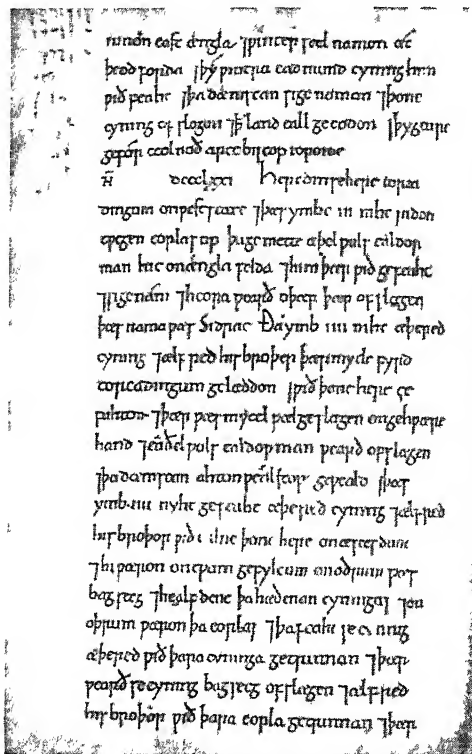 innon east ængla ⁊ ƿintersetl namon æt
þeodforda ⁊ þẏ ƿintra eadmund cyning him
ƿiþ feaht ⁊ þa deniscan sige naman ⁊ þone
cyning ofslogon ⁊ ꝥ land eall geeodon ⁊ þẏ geare
gefor ceolnoð arcebiscop to rome
dccclxxi Her cuom se here to rea
dingum on ƿestseaxe ⁊ þæs ymbe iii niht ridon
tƿegen eorlas up þa gemette æþelƿulf ealdor
man hie on ængla felda ⁊ him þær ƿið gefeaht
⁊ sige nam ⁊ heora ƿearð oþer þær ofslagen
þæs nama ƿæs Sidrac Ða ymb iiii niht æþered
cyning ⁊ ælfred his broþer þær micle fyrd
to readingum gelæddon ⁊ ƿið þone here ge
fuhton ⁊ þær ƿæs mycel ƿæl geslagen on gehƿæþre
hand ⁊ æðelƿulf ealdorman ƿearð ofslagen
⁊ þa deniscan ahton ƿælstoƿe geƿeald ⁊ þæs
ymb iiii nyht gefeaht æþered cyning ⁊ ælfred
his broþor ƿið alne þone here on æscesdune
⁊ hi ƿæron on tƿam gefylcum on oðrum ƿæs
bagsecg ⁊ healfdene þa hæðenan cyningas ⁊ on
oþrum ƿæron þa eorlas ⁊ þa feaht se cyning
æþered ƿið þara cyninga getruman ⁊ þær
ƿearð se cyning bagsecg ofslagen ⁊ ælfred
his broþor ƿið þara eorla getruman ⁊ þær